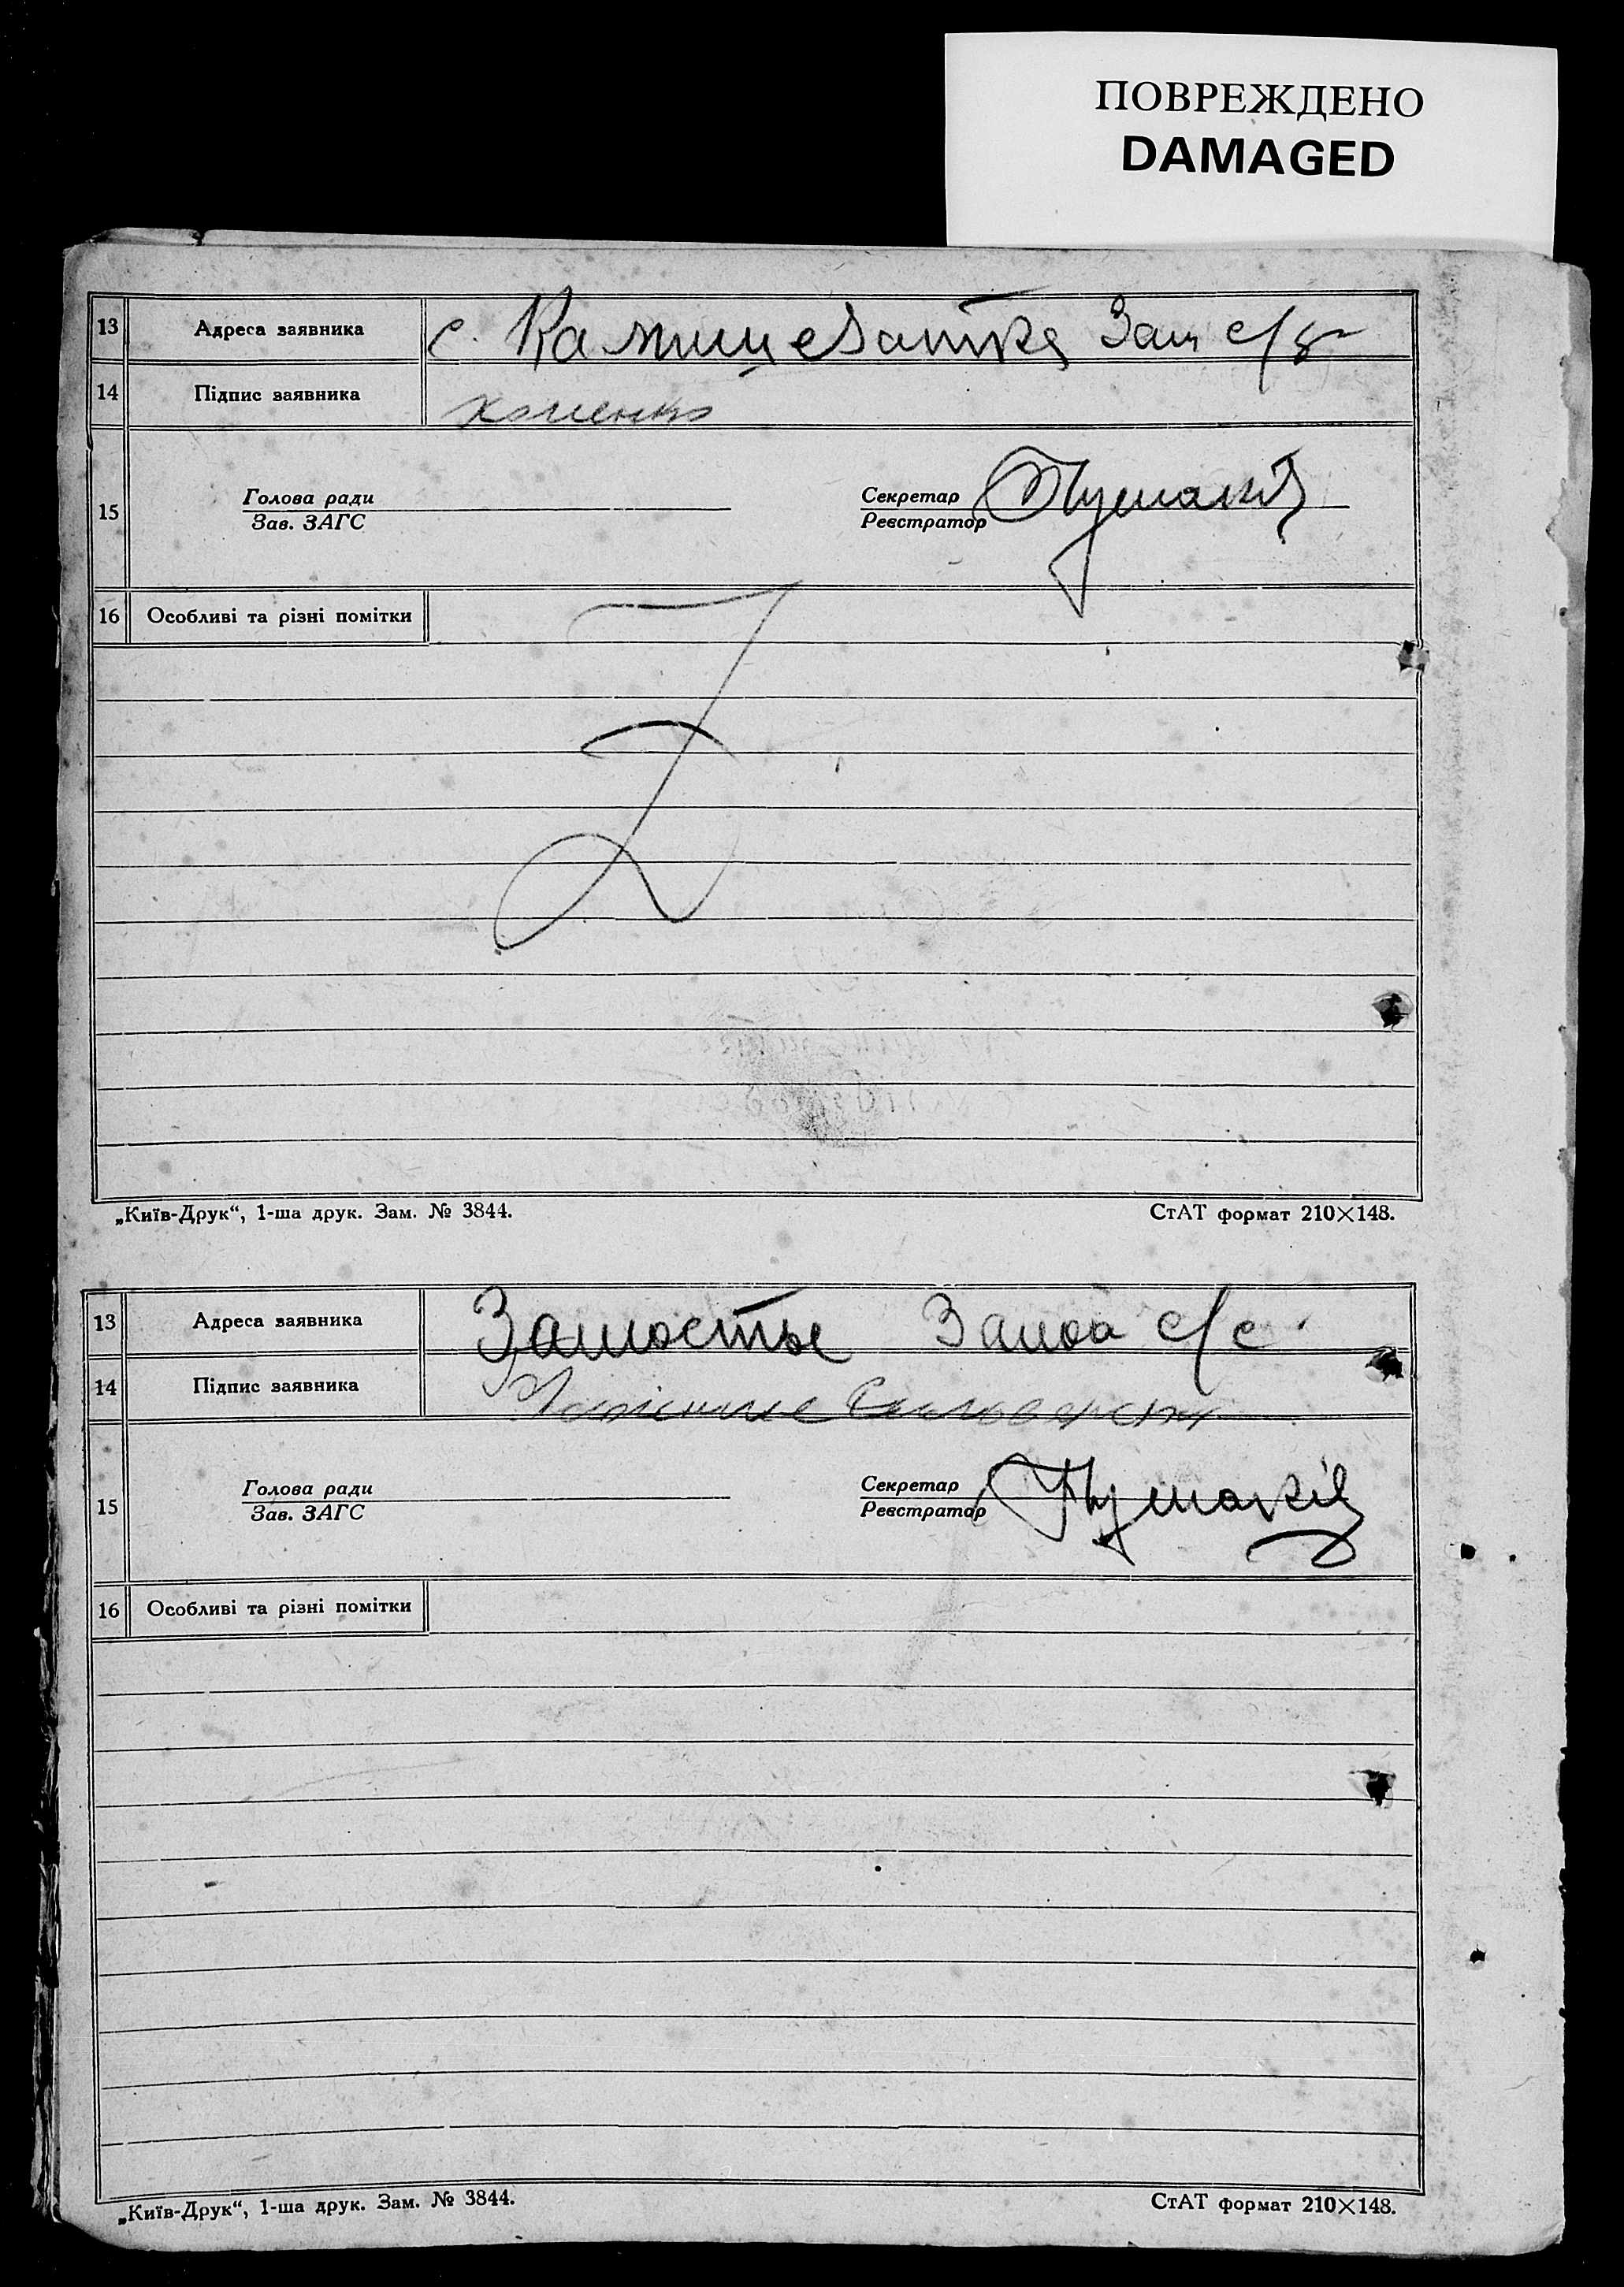 ПОВРЕЖДЕНО
DAMAGED
13 Адреса заявника с. Камишеватка Зам с/р
14 Підпис заявника
15 Голова ради Секретар
Зав. ЗАГС Реєстратор
16 Особливі та різні помітки
„Київ-Друк“, 1-ша друк. Зам. № 3844. СтАТ формат 210×148.
13 Адреса заявника Замостье Замос с/с.
14 Підпис заявника
15 Голова ради Секретар
Зав. ЗАГС Реєстратор
16 Особливі та різні помітки
„Київ-Друк“, 1-ша друк. Зам. № 3844. СтАТ формат 210×148.